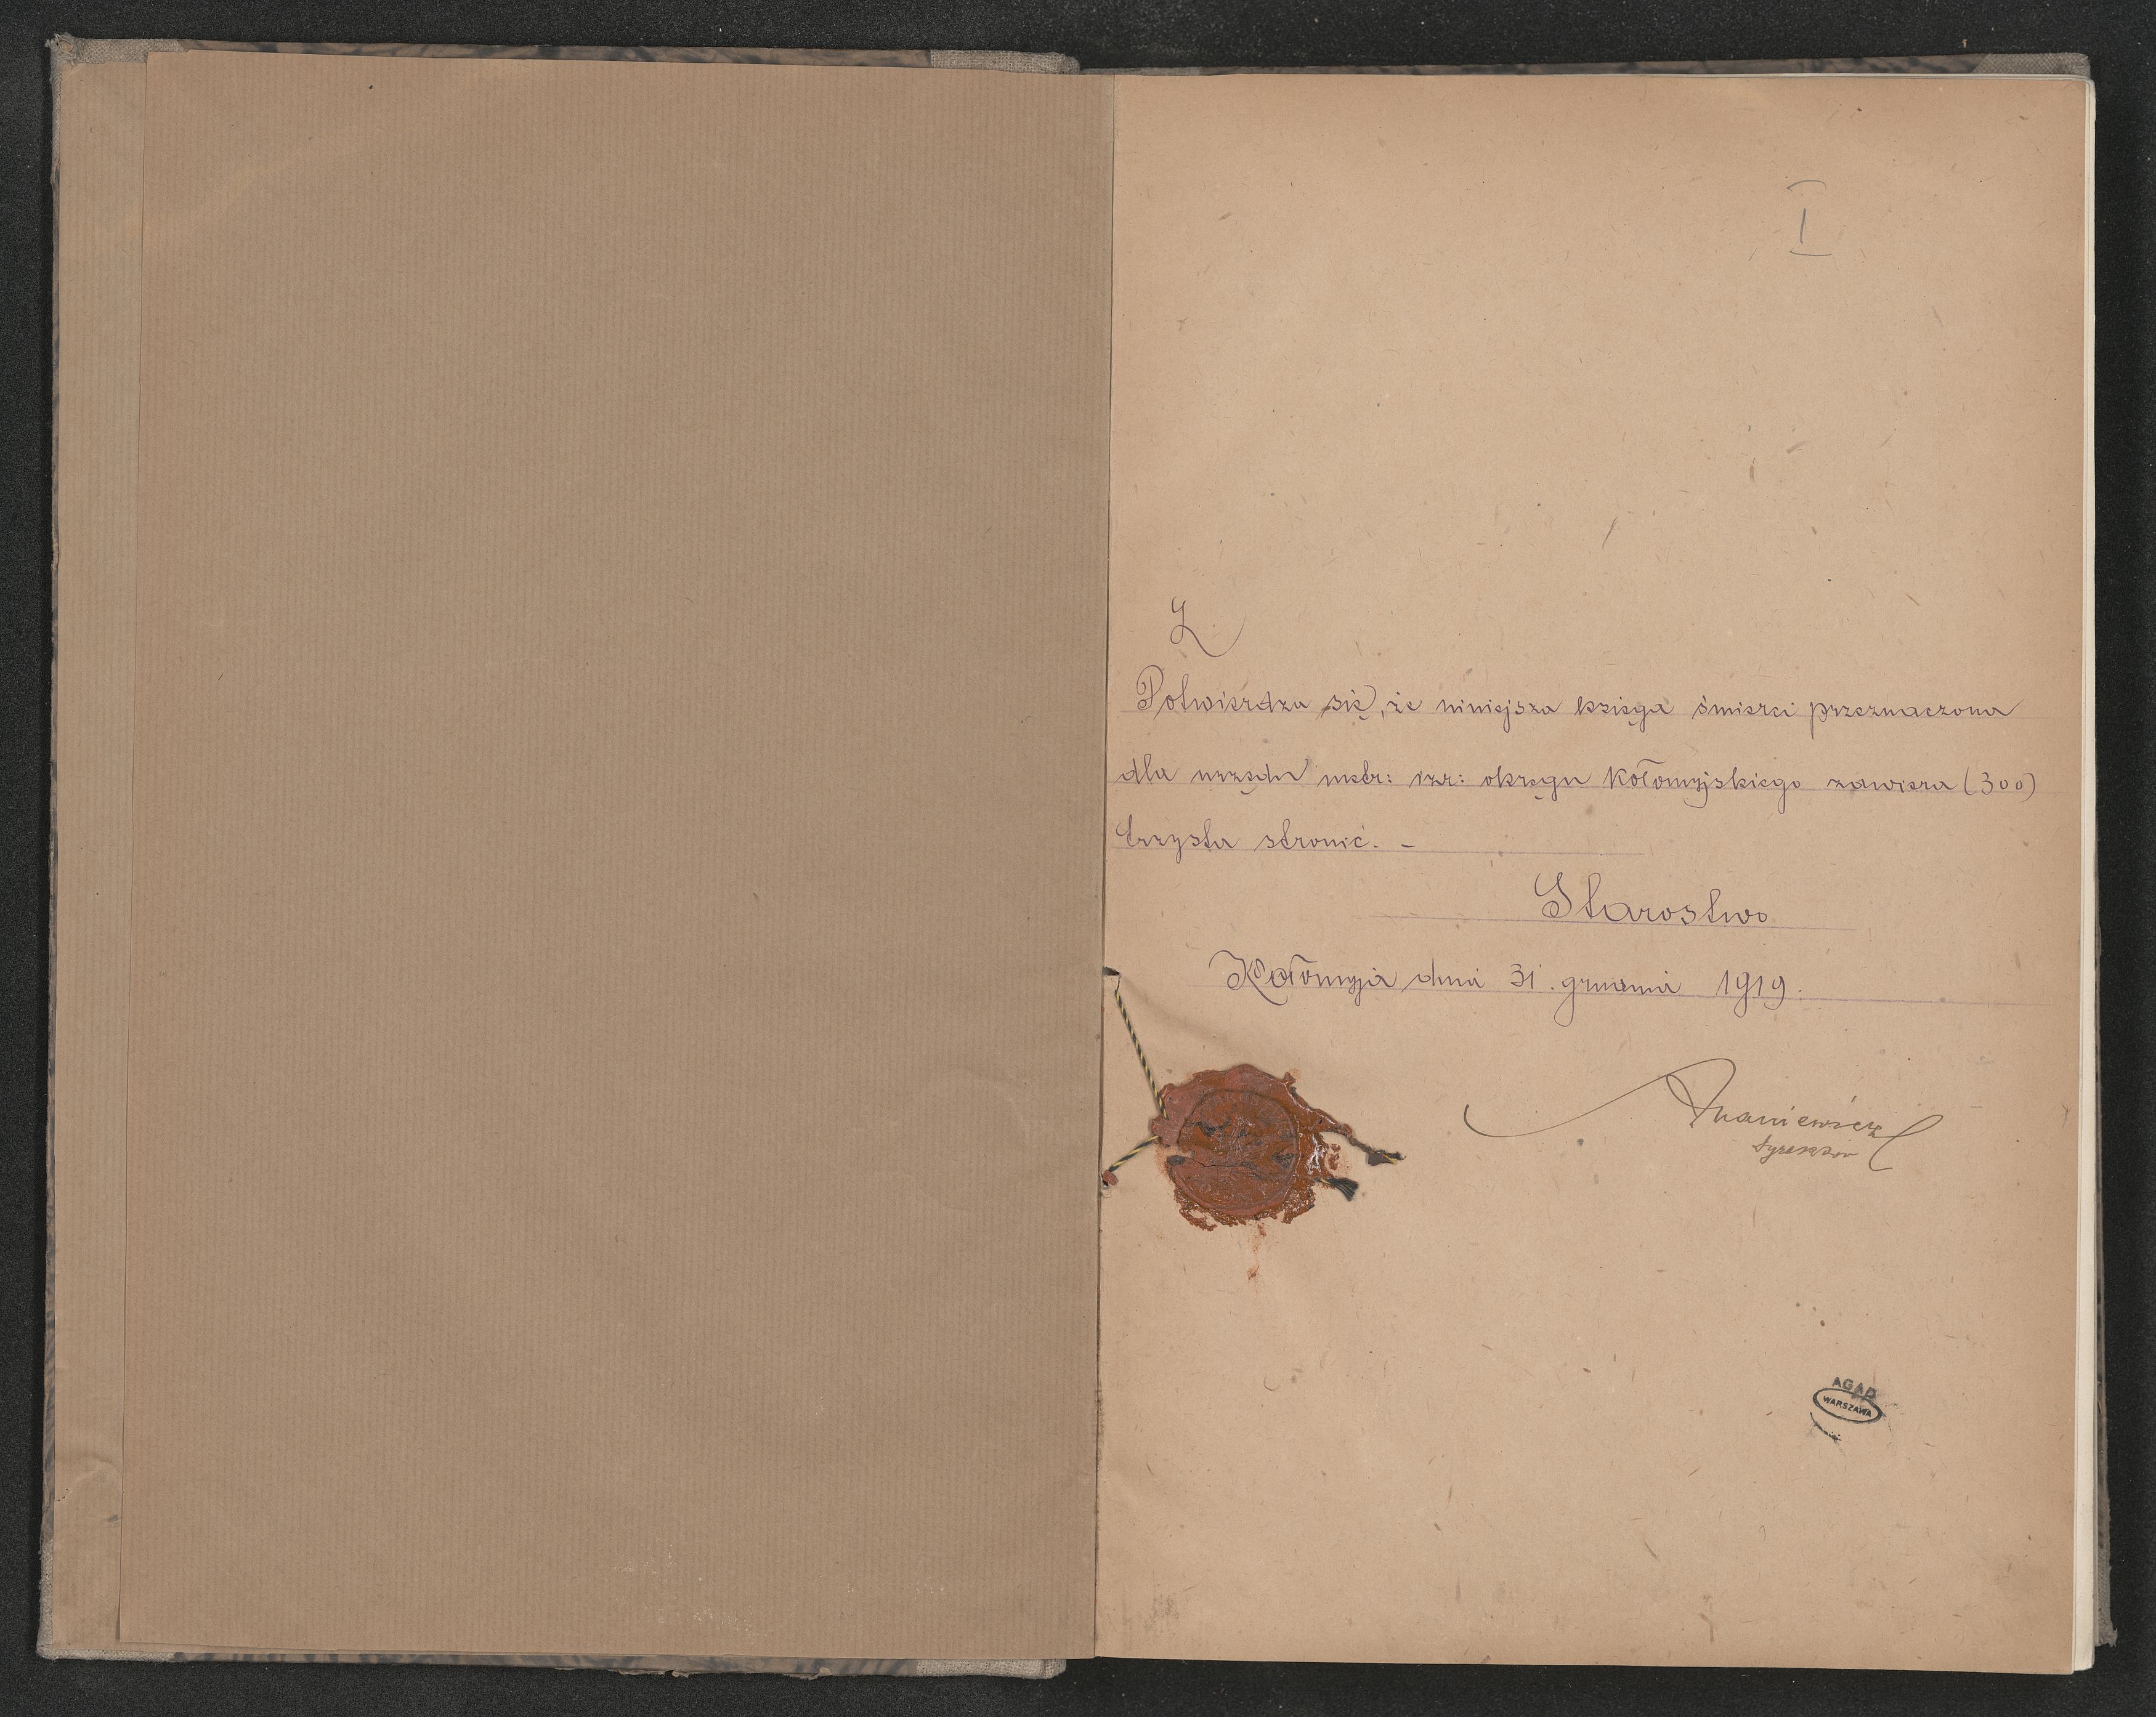 I
L
Potwierdza się, że niniejsza księga śmierci przeznaczona
dla urzędu metr: izr: okręgu Kołomyjskiego zawiera (300)
trzysta stronic. –
Starostwo
Kołomyja dnia 31. grudnia 1919.
AGAD
WARSZAWA